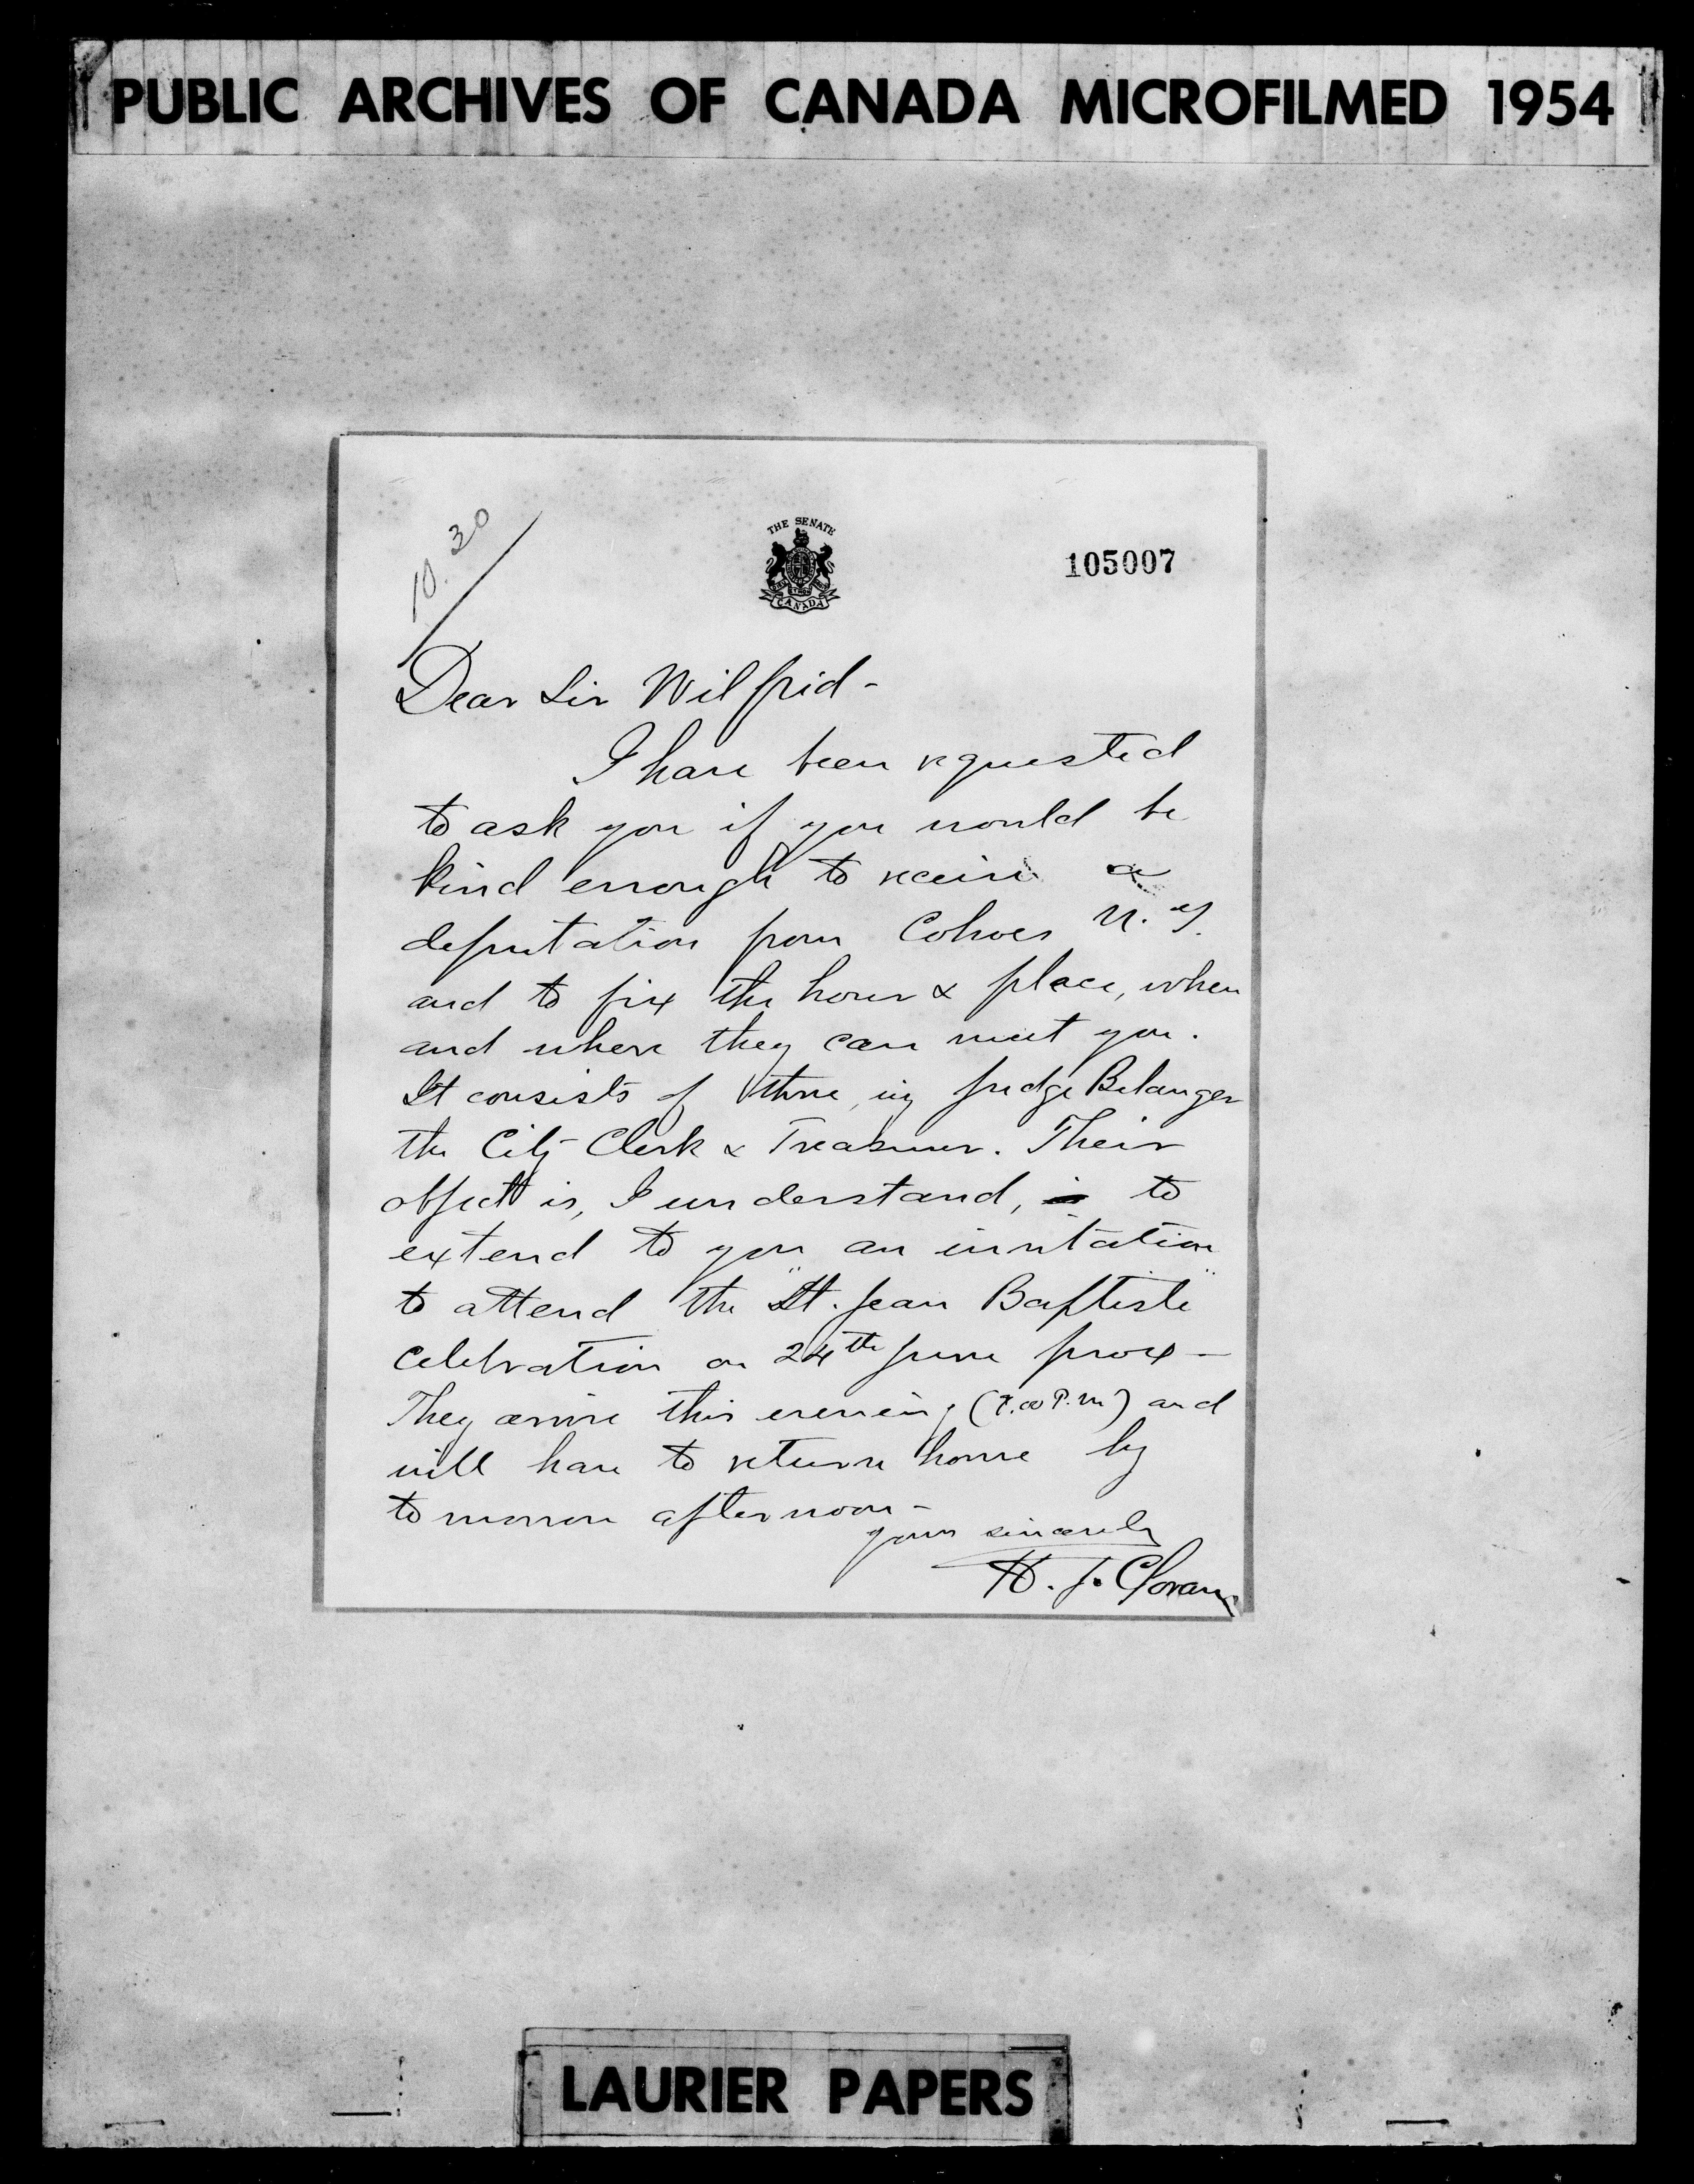 PUBLIC ARCHIVES OF CANADA MICROFILMED 1954
10.30
THE SENATE
CANADA
105007
Dear Sir Wilfrid -
I have been requested
to ask you if you would be
kind enough to receive a
deputation from Cohoes N.Y.
and to fix the hour & place, when
and where they can meet you.
It consists of three, viz Judge Belanger
the City Clerk & Treasurer. Their
object is, I understand, is to
extend to you an invitation
to attend the "St. Jean Baptiste"
celebration on 24th June prox -
They arrive this evening (7.00 P.M) and
will have to return home by
tomorrow afternoon -
yours sincerely
H. J. Cloran
LAURIER PAPERS